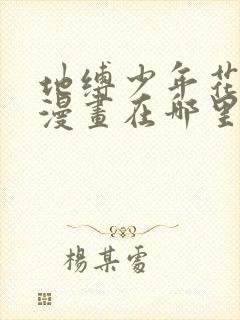 地缚少年花
漫畫在哪里
楊某雷